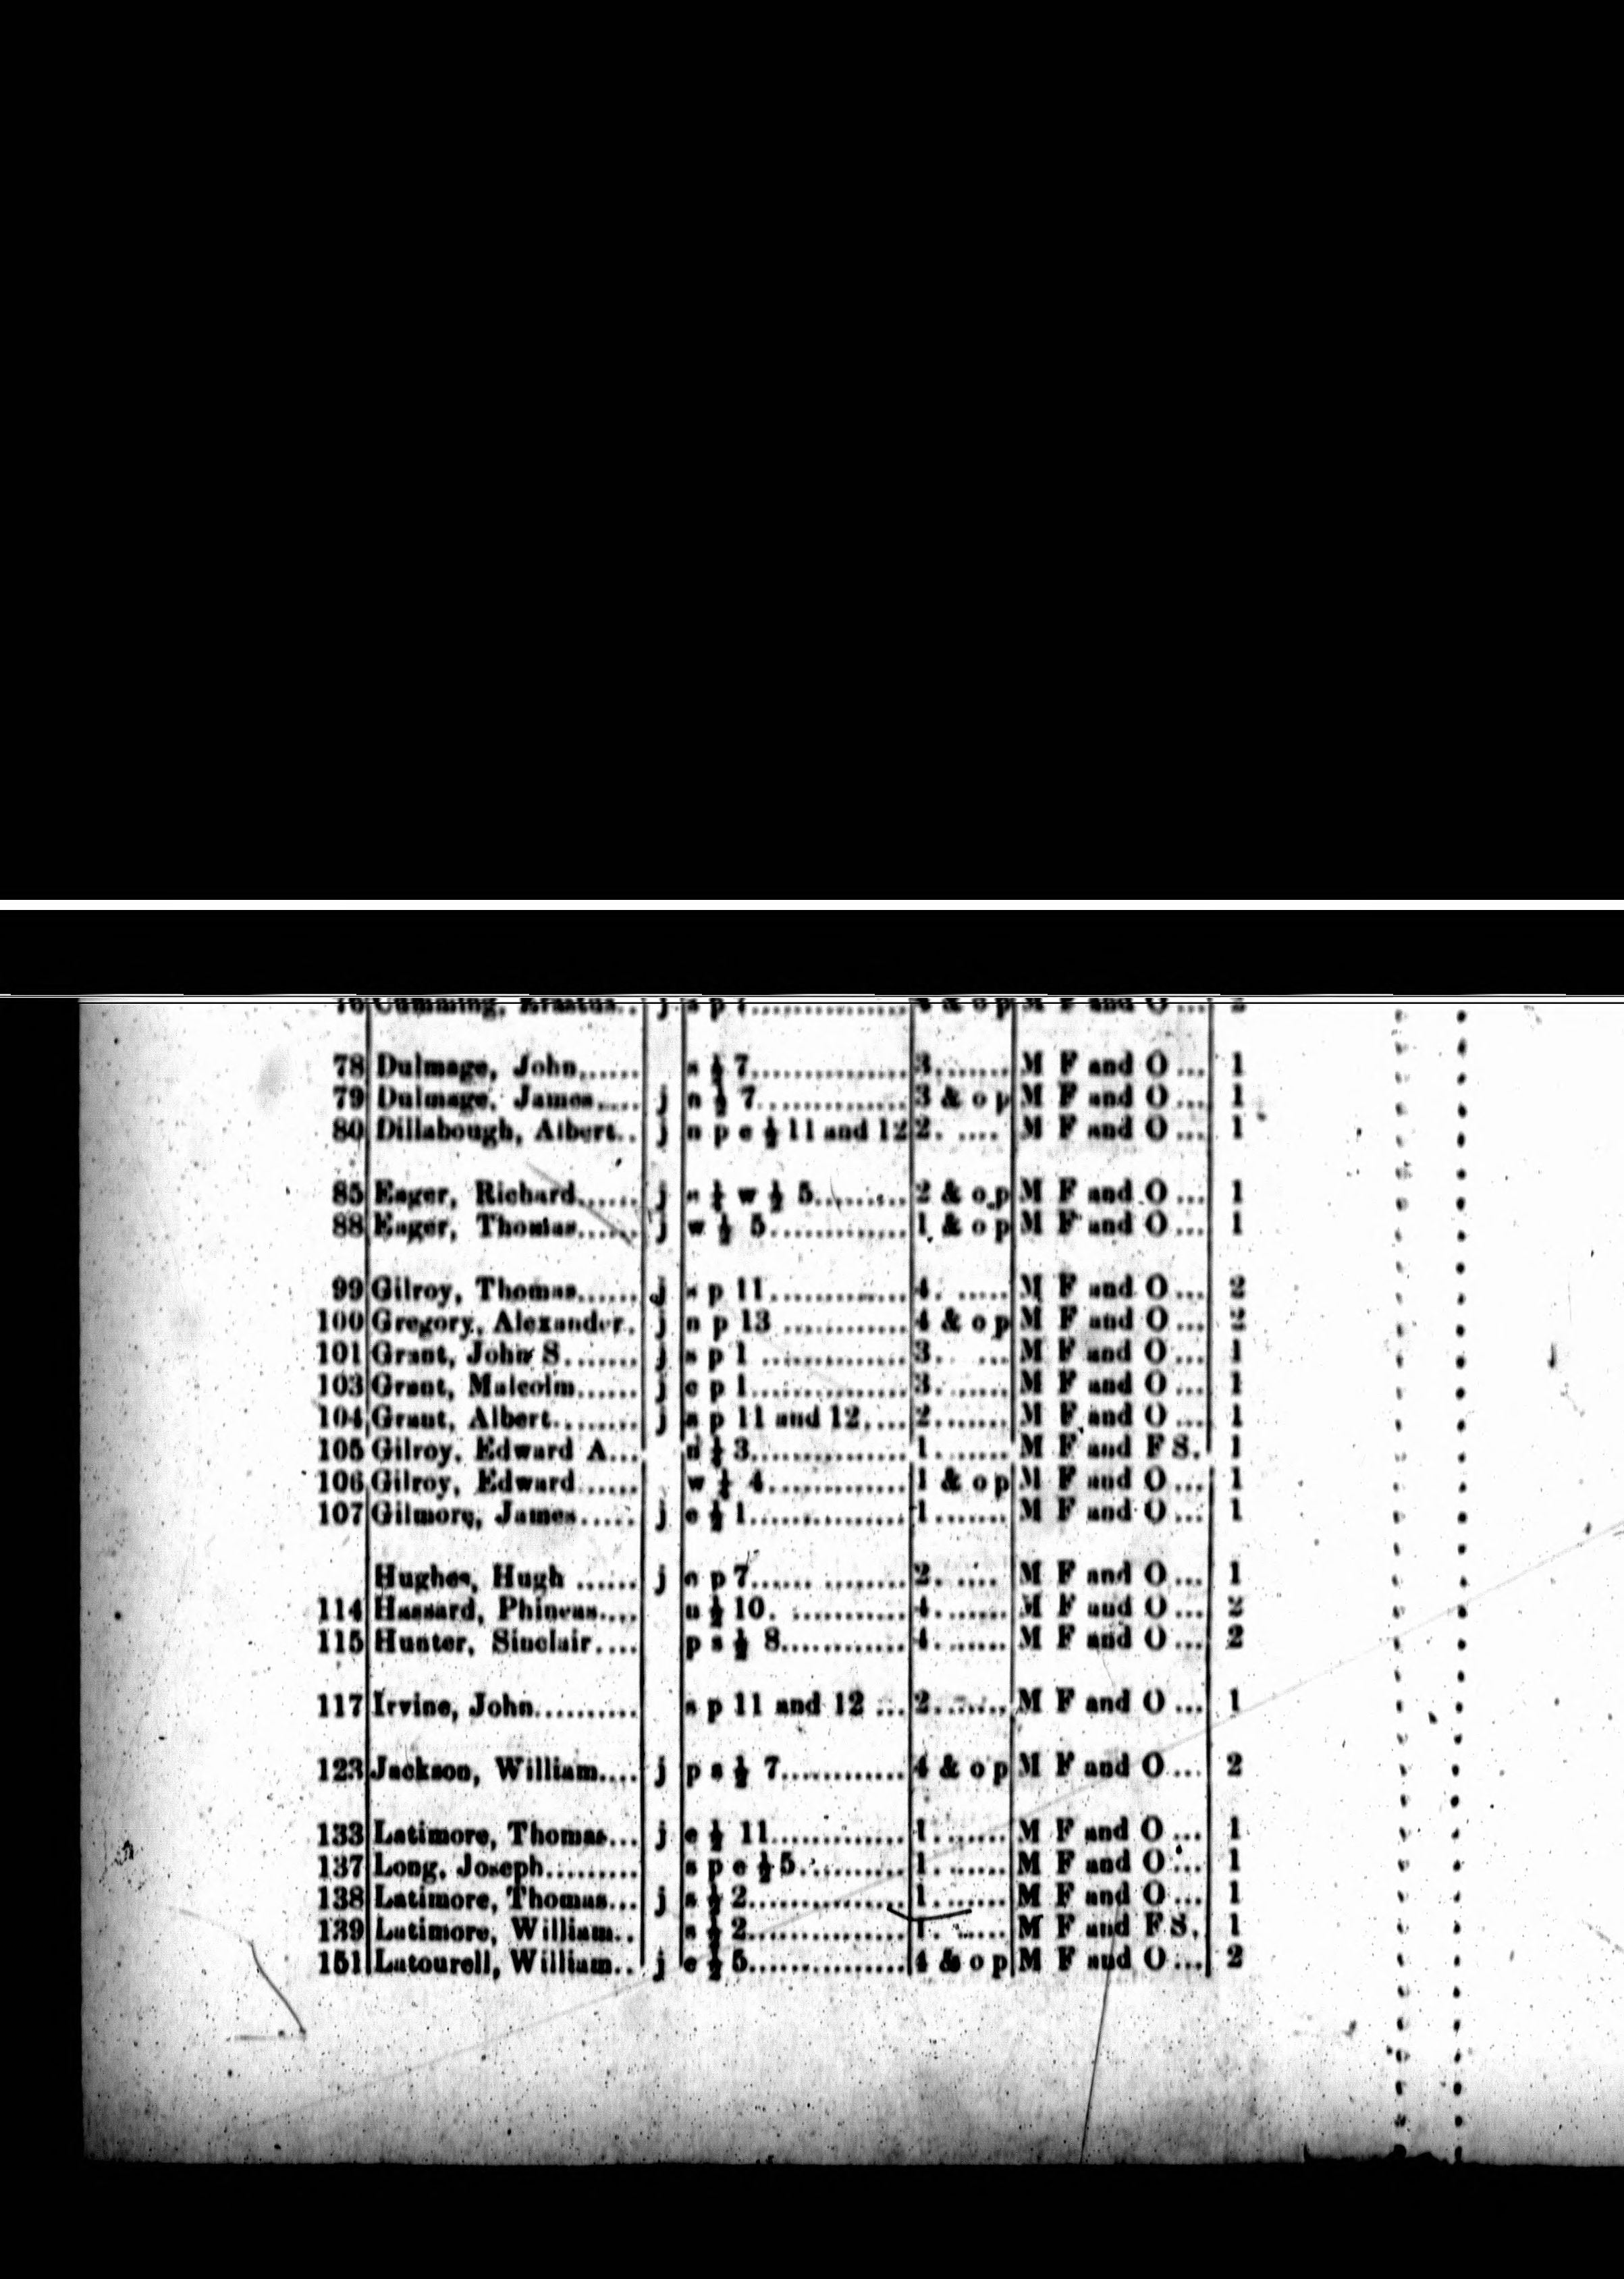 76 Cumming, Erastus.. j s p 7............... 4 & o p M F and O... 2
78 Dulmage, John...... s ½ 7............... 3....... M F and O... 1
79 Dulmage, James..... j n ½ 7............... 3 & o p M F and O... 1
80 Dillabough, Albert.. j n p e ½ 11 and 12 2. .... M F and O... 1
85 Eager, Richard...... j ½ w ½ 5......... 2 & o p M F and O... 1
88 Eager, Thomas...... j w ½ 5............. 1 & o p M F and O... 1
99 Gilroy, Thomas...... j p 11............. 4. ..... M F and O... 2
100 Gregory, Alexander. j n p 13 ............ 4 & o p M F and O... 2
101 Grant, John S....... j s p 1 ............... 3. ... M F and O... 1
103 Grant, Malcolm...... j e p 1............... 3. ...... M F and O... 1
104 Grant, Albert........ j s p 11 and 12.... 2....... M F and O... 1
105 Gilroy, Edward A... n ½ 3............... 1. ...... M F and F S. 1
106 Gilroy, Edward...... w ½ 4............. 1 & o p M F and O... 1
107 Gilmore, James..... j e ½ 1............... 1....... M F and O... 1
Hughes, Hugh ...... j n p 7...... ........ 2. .... M F and O... 1
114 Hassard, Phineas.... n ½ 10. ........... 4....... M F and O... 2
115 Hunter, Sinclair.... p s ½ 8............ 4....... M F and O... 2
117 Irvine, John.......... s p 11 and 12 ... 2....... M F and O... 1
123 Jackson, William.... j p s ½ 7............ 4 & o p M F and O... 2
133 Latimore, Thomas... j e ½ 11............. 1. ...... M F and O... 1
137 Long, Joseph......... s p e ½ 5.......... 1. ...... M F and O... 1
138 Latimore, Thomas... j s ½ 2............... 1....... M F and O... 1
139 Latimore, William.. s ½ 2............... 1. ..... M F and F S. 1
151 Latourell, William.. j e ½ 5............... 4 & o p M F and O... 2